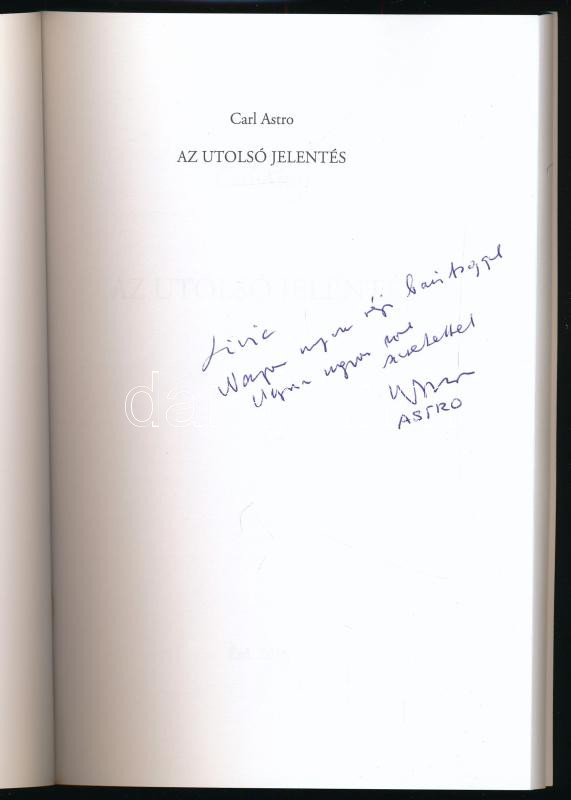 Carl Astro
AZ UTOLSÓ JELENTÉS
Livia
Nagyon nagyon régi barátsággal
Nagyon nagyon sok
szeretettel
ASTRO